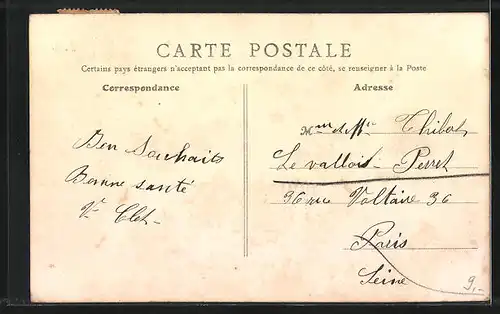 CARTE POSTALE
Certains pays étrangers n'acceptant pas la correspondance de ce côté, se renseigner à la Poste
Correspondance
Adresse
Bon Souhaits
Bonne santé
Clet
Thibot
Levallois Perret
36 rue Voltaire 36
Paris
Seine
9,-